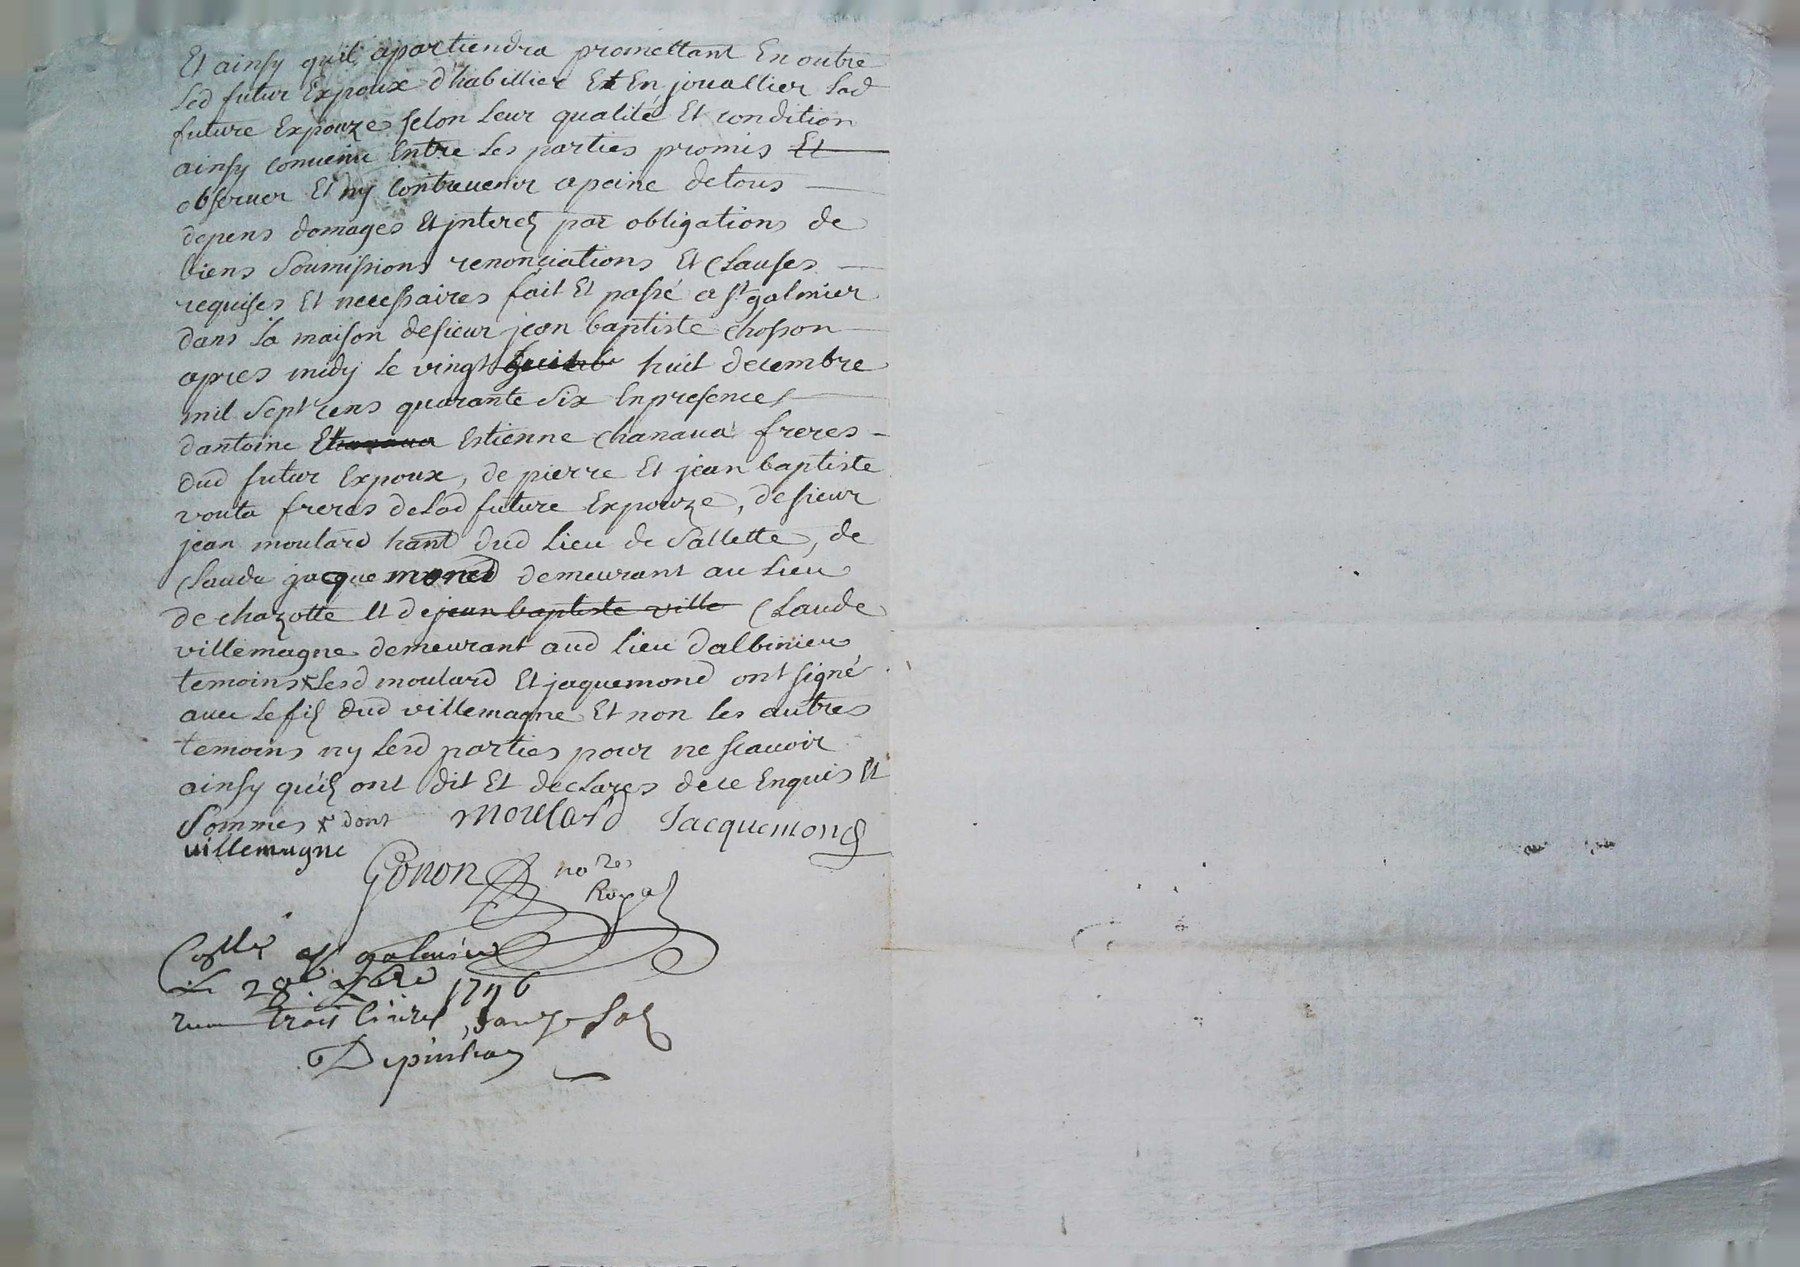 Et ainsy quil apartiendra promettant En outre
Led futur Expoux d'habillier Et En jouallier Lad
future Expouze selon Leur qualité Et condition
ainsy convenu Entre Les parties promis Et
observer Et ny contrevenir a peine de tous
depens domages Et jnterets par obligations de
biens Soumissions renonciations Et Clauses
requises Et necessaires fait Et passé a st galmier
dans La maison de sieur jean baptiste chosson
apres midy Le vingt huit decembre
mil Sept cens quarante Six En presences
dantoine Estienne chanaua freres
dud futur Expoux, de pierre Et jean baptiste
vouta freres de Lad future Expouze, de sieur
jean moulard hant dud Lieu de Sallette, de
Claude jacquemond demeurant au Lieu
de chazotte et de jean baptiste ville Claude
villemagne demeurant aud Lieu dalbinieu
temoins x Lesd moulard Et jaquemond ont signé
avec Le fils dud villemagne Et non les autres
temoins ny Lesd parties pour ne scavoir
ainsy quils ont dit Et declares de ce Enquis Et
Sommes x dont Moulard Jacquemond
villemagne
Gonon nores
Royal
a st galmier
Le 28e 1746
trois livres Sols